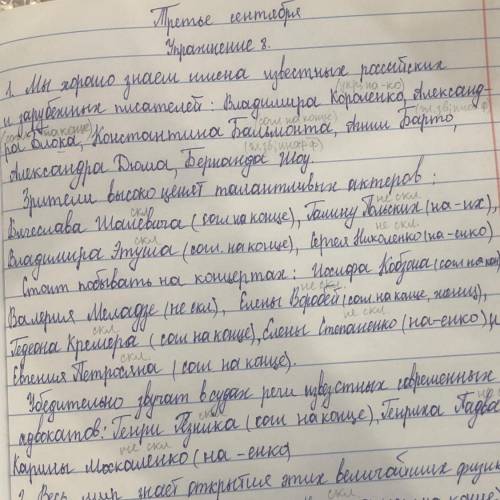 Третье сентября
Упражнение 8.
1. Мы хорошо знаем имена известных российских
(укр. на -ко)
и зарубежных писателей: Владимира Короленко, Александ-
ра Блока, Константина Бальмонта, Агнии Барто,
Александра Дюма, Бернарда Шоу.
Зрители высоко ценят талантливых актеров:
скл не скл.
Вячеслава Шалевича (согл. на конце), Галину Польских (на -их),
скл. не скл.
Владимира Этуша (согл. на конце), Сергея Николенко (на -енко)
Стоит побывать на концертах: Иосифа Кобзона (согл. на кон
не скл.
Валерия Меладзе (не скл), Елены Воробей (согл. на конце, женщ),
скл. не скл
Гедеона Кремера (согл. на конце), Елены Степаненко (на -енко) и
скл.
Евгения Петросяна (согл. на конце).
Убедительно звучат в судах речи известных современных
скл
адвокатов: Генри Резника (согл. на конце), Генриха Падвы
не скл
Карины Москаленко (на -енко)
2. Весь мир знает открытия этих величайших физик
скл.